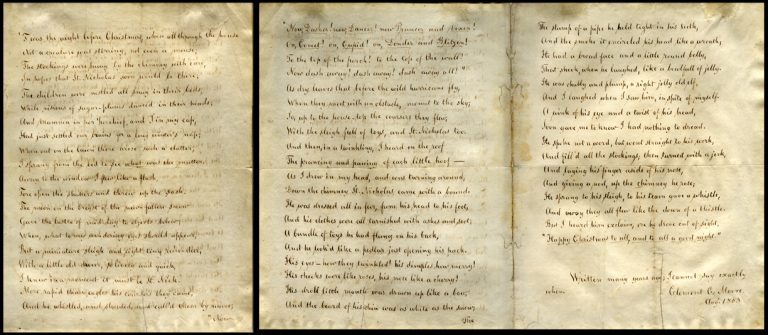 'Twas the night before Christmas, when all through the house
Not a creature was stirring, not even a mouse;
The stockings were hung by the chimney with care,
In hopes that St. Nicholas soon would be there;
The children were nestled all snug in their beds,
While visions of sugar-plums danced in their heads;
And Mamma in her 'kerchief, and I in my cap,
Had just settled our brains for a long winter's nap;
When out on the lawn there arose such a clatter,
I sprang from the bed to see what was the matter.
Away to the window I flew like a flash,
Tore open the shutters and threw up the sash.
The moon on the breast of the new-fallen snow
Gave the lustre of mid-day to objects below,
When, what to my wondering eyes should appear,
But a miniature sleigh, and eight tiny reindeer,
With a little old driver, so lively and quick,
I knew in a moment it must be St. Nick.
More rapid than eagles his coursers they came,
And he whistled, and shouted, and call'd them by name;
"Now
"Now, Dasher! now, Dancer! now Prancer and Vixen!
On, Comet! on, Cupid! on, Donder and Blitzen!
To the top of the porch! to the top of the wall!
Now dash away! dash away! dash away all!"
As dry leaves that before the wild hurricane fly,
When they meet with an obstacle, mount to the sky;
So up to the house-top the coursers they flew,
With the sleigh full of toys, and St. Nicholas too.
And then, in a twinkling, I heard on the roof
The prancing and pawing of each little hoof—
As I drew in my head, and was turning around,
Down the chimney St. Nicholas came with a bound.
He was dressed all in fur, from his head to his foot,
And his clothes were all tarnished with ashes and soot;
A bundle of toys he had flung on his back,
And he look'd like a pedlar just opening his pack.
His eyes—how they twinkled! his dimples how merry!
His cheeks were like roses, his nose like a cherry!
His droll little mouth was drawn up like a bow,
And the beard of his chin was as white as the snow;
The
The stump of a pipe he held tight in his teeth,
And the smoke it encircled his head like a wreath;
He had a broad face and a little round belly,
That shook when he laughed, like a bowlfull of jelly.
He was chubby and plump, a right jolly old elf,
And I laughed when I saw him, in spite of myself.
A wink of his eye and a twist of his head,
Soon gave me to know I had nothing to dread.
He spoke not a word, but went straight to his work,
And fill'd all the stockings; then turned with a jerk,
And laying his finger aside of his nose,
And giving a nod, up the chimney he rose;
He sprang to his sleigh, to his team gave a whistle,
And away they all flew like the down of a thistle.
But I heard him exclaim, ere he drove out of sight,
"Happy Christmas to all, and to all a good night."
Written many years ago; I cannot say exactly
when.
Clement C. Moore.